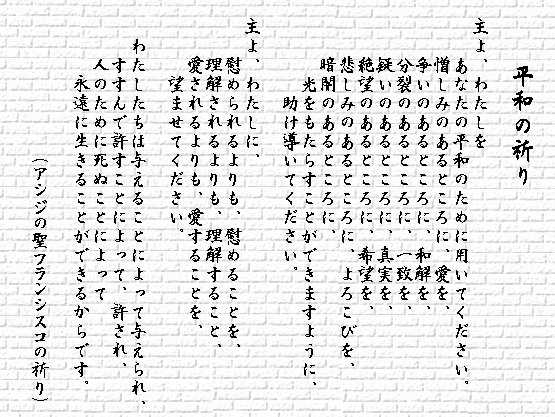 平和の祈り
主よ、わたしを
あなたの平和のために用いてください。
憎しみのあるところに、愛を、
争いのあるところに、和解を、
分裂のあるところに、一致を、
疑いのあるところに、真実を、
絶望のあるところに、希望を、
悲しみのあるところに、よろこびを、
暗闇のあるところに、
光をもたらすことができますように、
助け導いてください。
主よ、わたしに、
慰められるよりも、慰めることを、
理解されるよりも、理解すること、
愛されるよりも、愛することを、
望ませてください。
わたしたちは与えることによって与えられ、
すすんで許すことによって、許され、
人のために死ぬことによって
永遠に生きることができるからです。
(アシジの聖フランシスコの祈り)